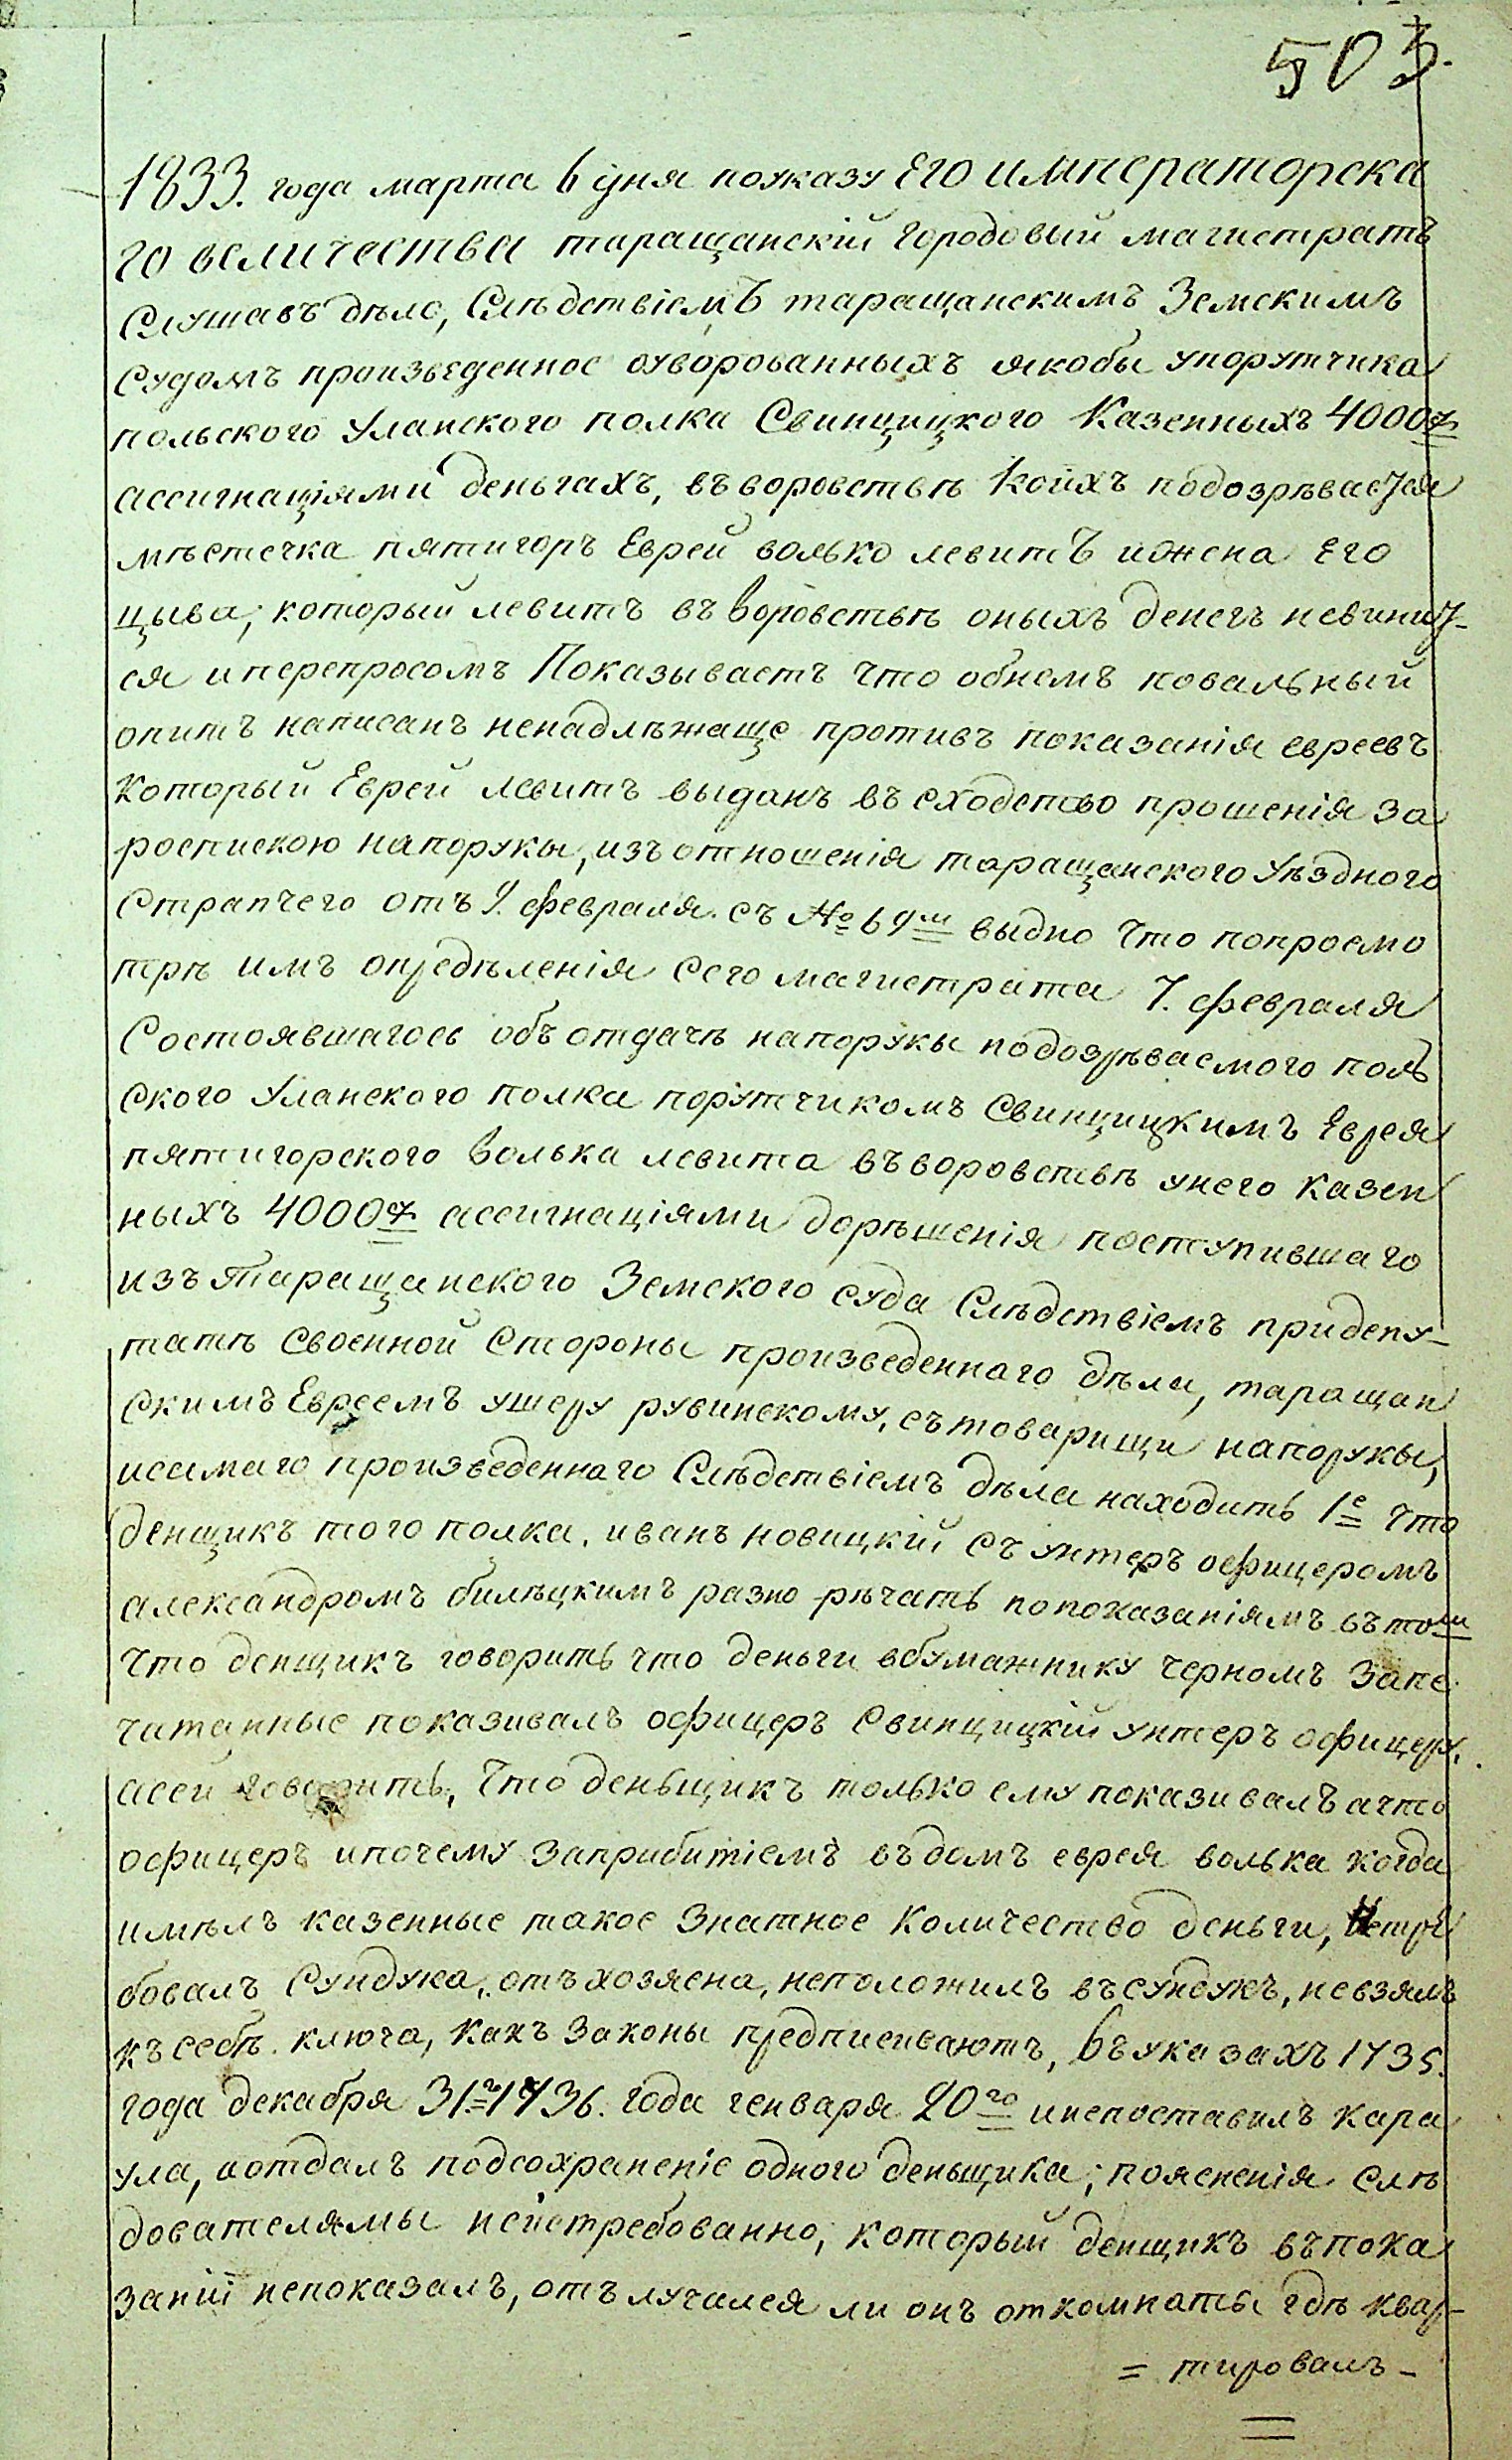 503.
1833. года марта 6 дня поуказу Его императорска
го величества таращанскій городовий магистратъ
Слушавъ дѣло, Слѣдствіемъ таращанскимъ Земскимъ
Судомъ произведенное оуворованныхъ якобы упорутчика
польского Уланского полка Свинцицкого Казенныхъ 4000 р
ассигнаціями деньгахъ, въворовствѣ Коихъ подозрѣвается
мѣстечка пятигоръ Еврей волько левитъ ижена Его
цыва, который левитъ въворовствѣ оныхъ денегъ невинит-
ся иперепросомъ Показываетъ что обнемъ повальный
опитъ написанъ ненадлѣжаще противъ показанія евреевъ
который Еврей левитъ выданъ въ сходство прошенія за
роспискою напоруки, изъотношенія таращанского Уѣздного
Страпчего отъ 9. февраля съ № 69м выдно Что попросмо
трѣ имъ опредѣленія сего магистрата 7. февраля
Состоявшагось объ отдачѣ напоруки подозрѣваемого поль
ского Уланского полка порутчикомъ Свинцицкимъ Еврея
пятигорского Волька левита въворовствѣ унего казен
ныхъ 4000 р ассигнаціями дорѣшенія поступившаго
изъ Таращанского Земского суда Слѣдствіемъ придепу-
татѣ Своенной Стороны произведеннаго дѣла, таращан
скимъ Евреемъ ушеру рувинскому, съ товарищи напоруки,
исамаго произведеннаго Слѣдствіемъ дѣла находить 1е Что
денщикъ того полка, иванъ новицкій съ унтеръ офицеромъ
александромъ билѣцкимъ разно рѣчать попоказаніямъ въ томъ
Что денщикъ говорить что деньги вбумажнику черномъ Запе
чатанные показивалъ офицеръ Свинцицкій унтеръ офицеру,
асей говорить, Что деньщикъ только ему показивалъ ачто
офицеръ ипочему Заприбитіемъ въдомъ еврея волька когда
имѣлъ казенные такое Знатное Количество деньги, Нетре
бовалъ Сундука, отъ хозяена, неположилъ въсундукъ, невзялъ
къ себѣ ключа, Какъ Законы предписиваютъ, въуказахъ 1735.
года декабря 31го 1736. года генваря 20го инепоставилъ кара
ула, аотдалъ подсохраненіе одного деньщика; поясненія слѣ
дователямы неистребованно, который денщикъ въпока
заніи непоказалъ, отълучался ли онъ откомнаты гдѣ квар-
= тировалъ -